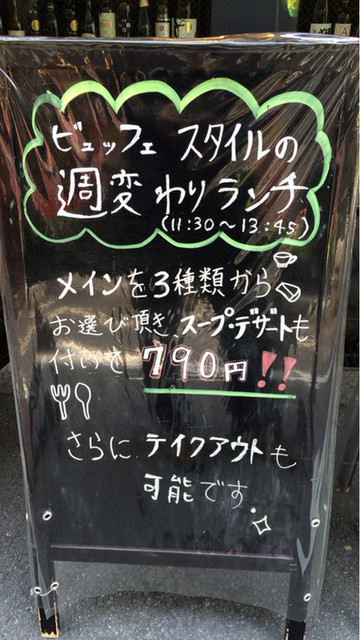 ビュッフェ スタイルの
週変わりランチ
(11:30～13:45)
メインを3種類から
お選び頂き、スープ・デザートも
付いて 790円!!
さらに テイクアウトも
可能です.